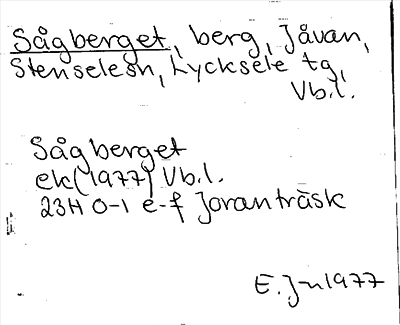 Sågberget, berg, Jåvan,
Stenselesn, Lycksele tg,
Vb.l.
Sågberget
ek(1977) Vb.l.
23H 0-1 e-f Joranträsk
E. J-n 1977